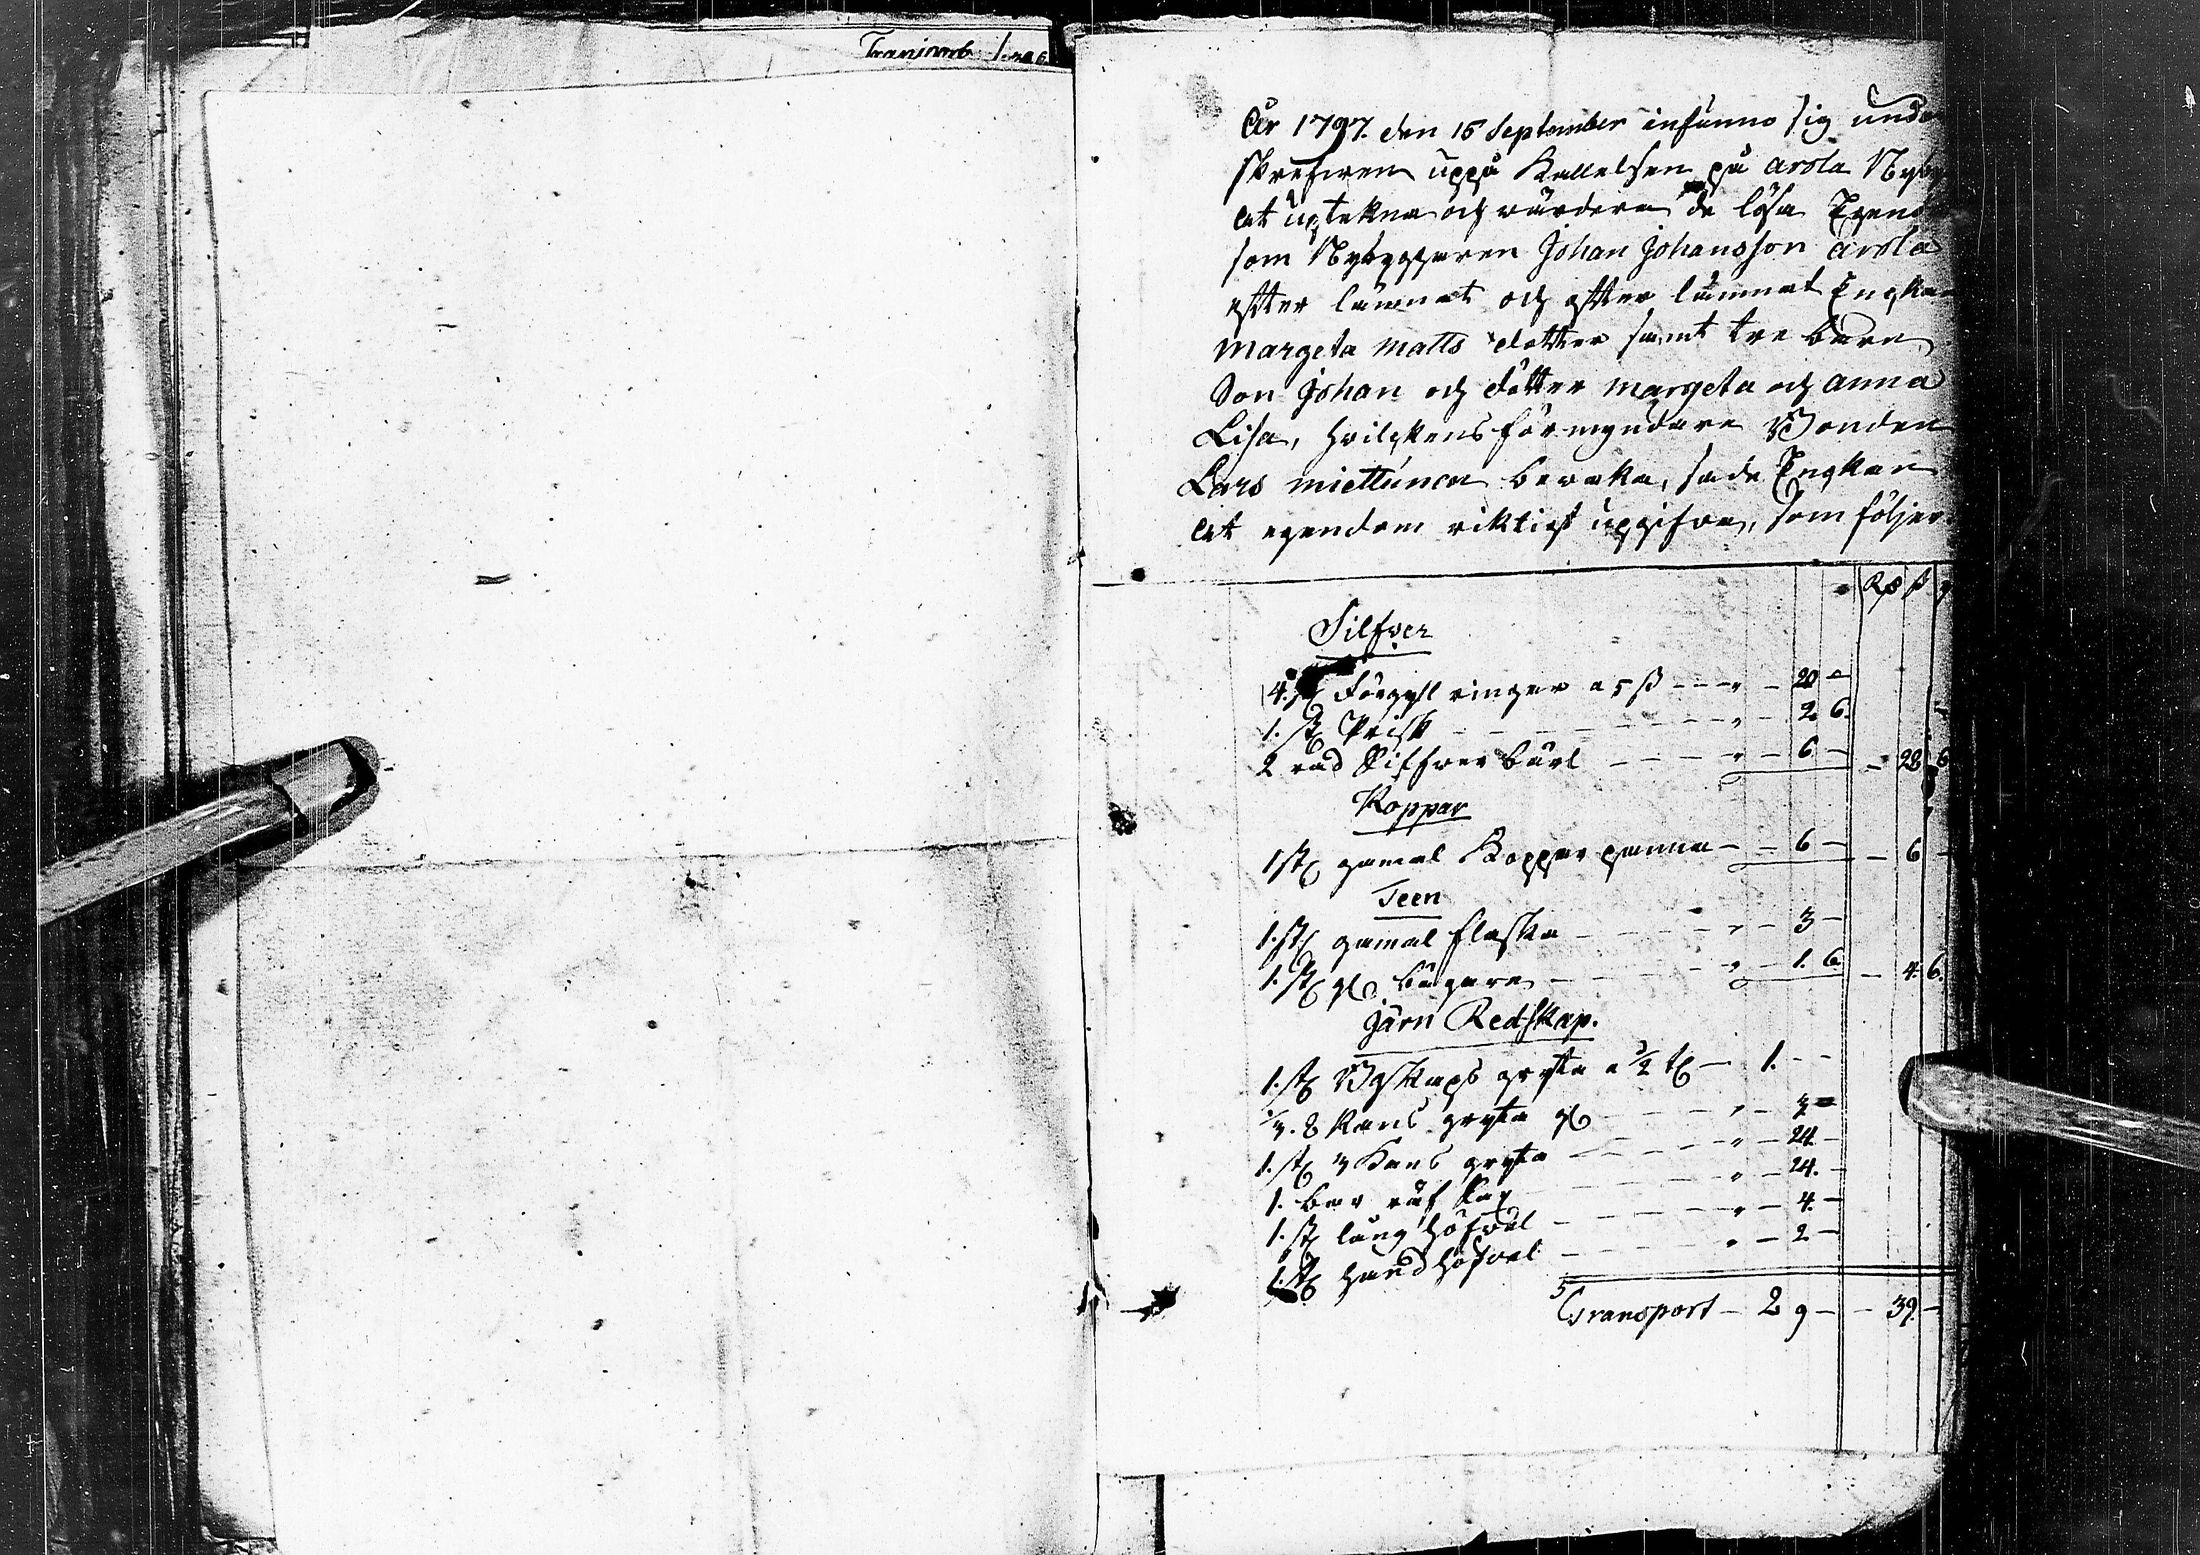 År 1797. den 16 September infunno sig unde
skrefwen uppå Kallelsen på Arola Nyby
at uptekna och värdera de lösa Egend
som Nybyggaren Johan Johansson Arola
efter lämnat och efter lämnat Enka
Margeta Matts dotter samt tre barn
Son Johan och dötter Margeta och Anna
Lisa, hvilkens förmyndare Bonden
Lars Miettinen bewaka, sade Enkan
at egendom riktigt upgifva, som följer.
Rd ß
Silfver
4. st Förgylt ringar a 5 ß - - - " - 20 -
1. st Prisk - - - - - " - 2 6.
2 rad Silfver bärl - - - - " - 6 - - 28 6
Koppar
1 st gamal Koppar panna - - 6 - - 6 -
Teen
1. st gamal flaska - - - - " - 3 -
1. st gl bägare - - - - " - 1. 6. - 4. 6.
Järn Redskap.
1. st Bskaps gryta a 1/2 t - 1. - -
8 kans gryta gl - - - - " -
1. st 3 Kans gryta - - - - " - 24. -
1. räf Sax - - - - " - 24. -
1. st lång höfvel - - - - " - 4. -
1. st hand höfvel - - - - " - 2 -
Transport - 2 9 - - 39. -